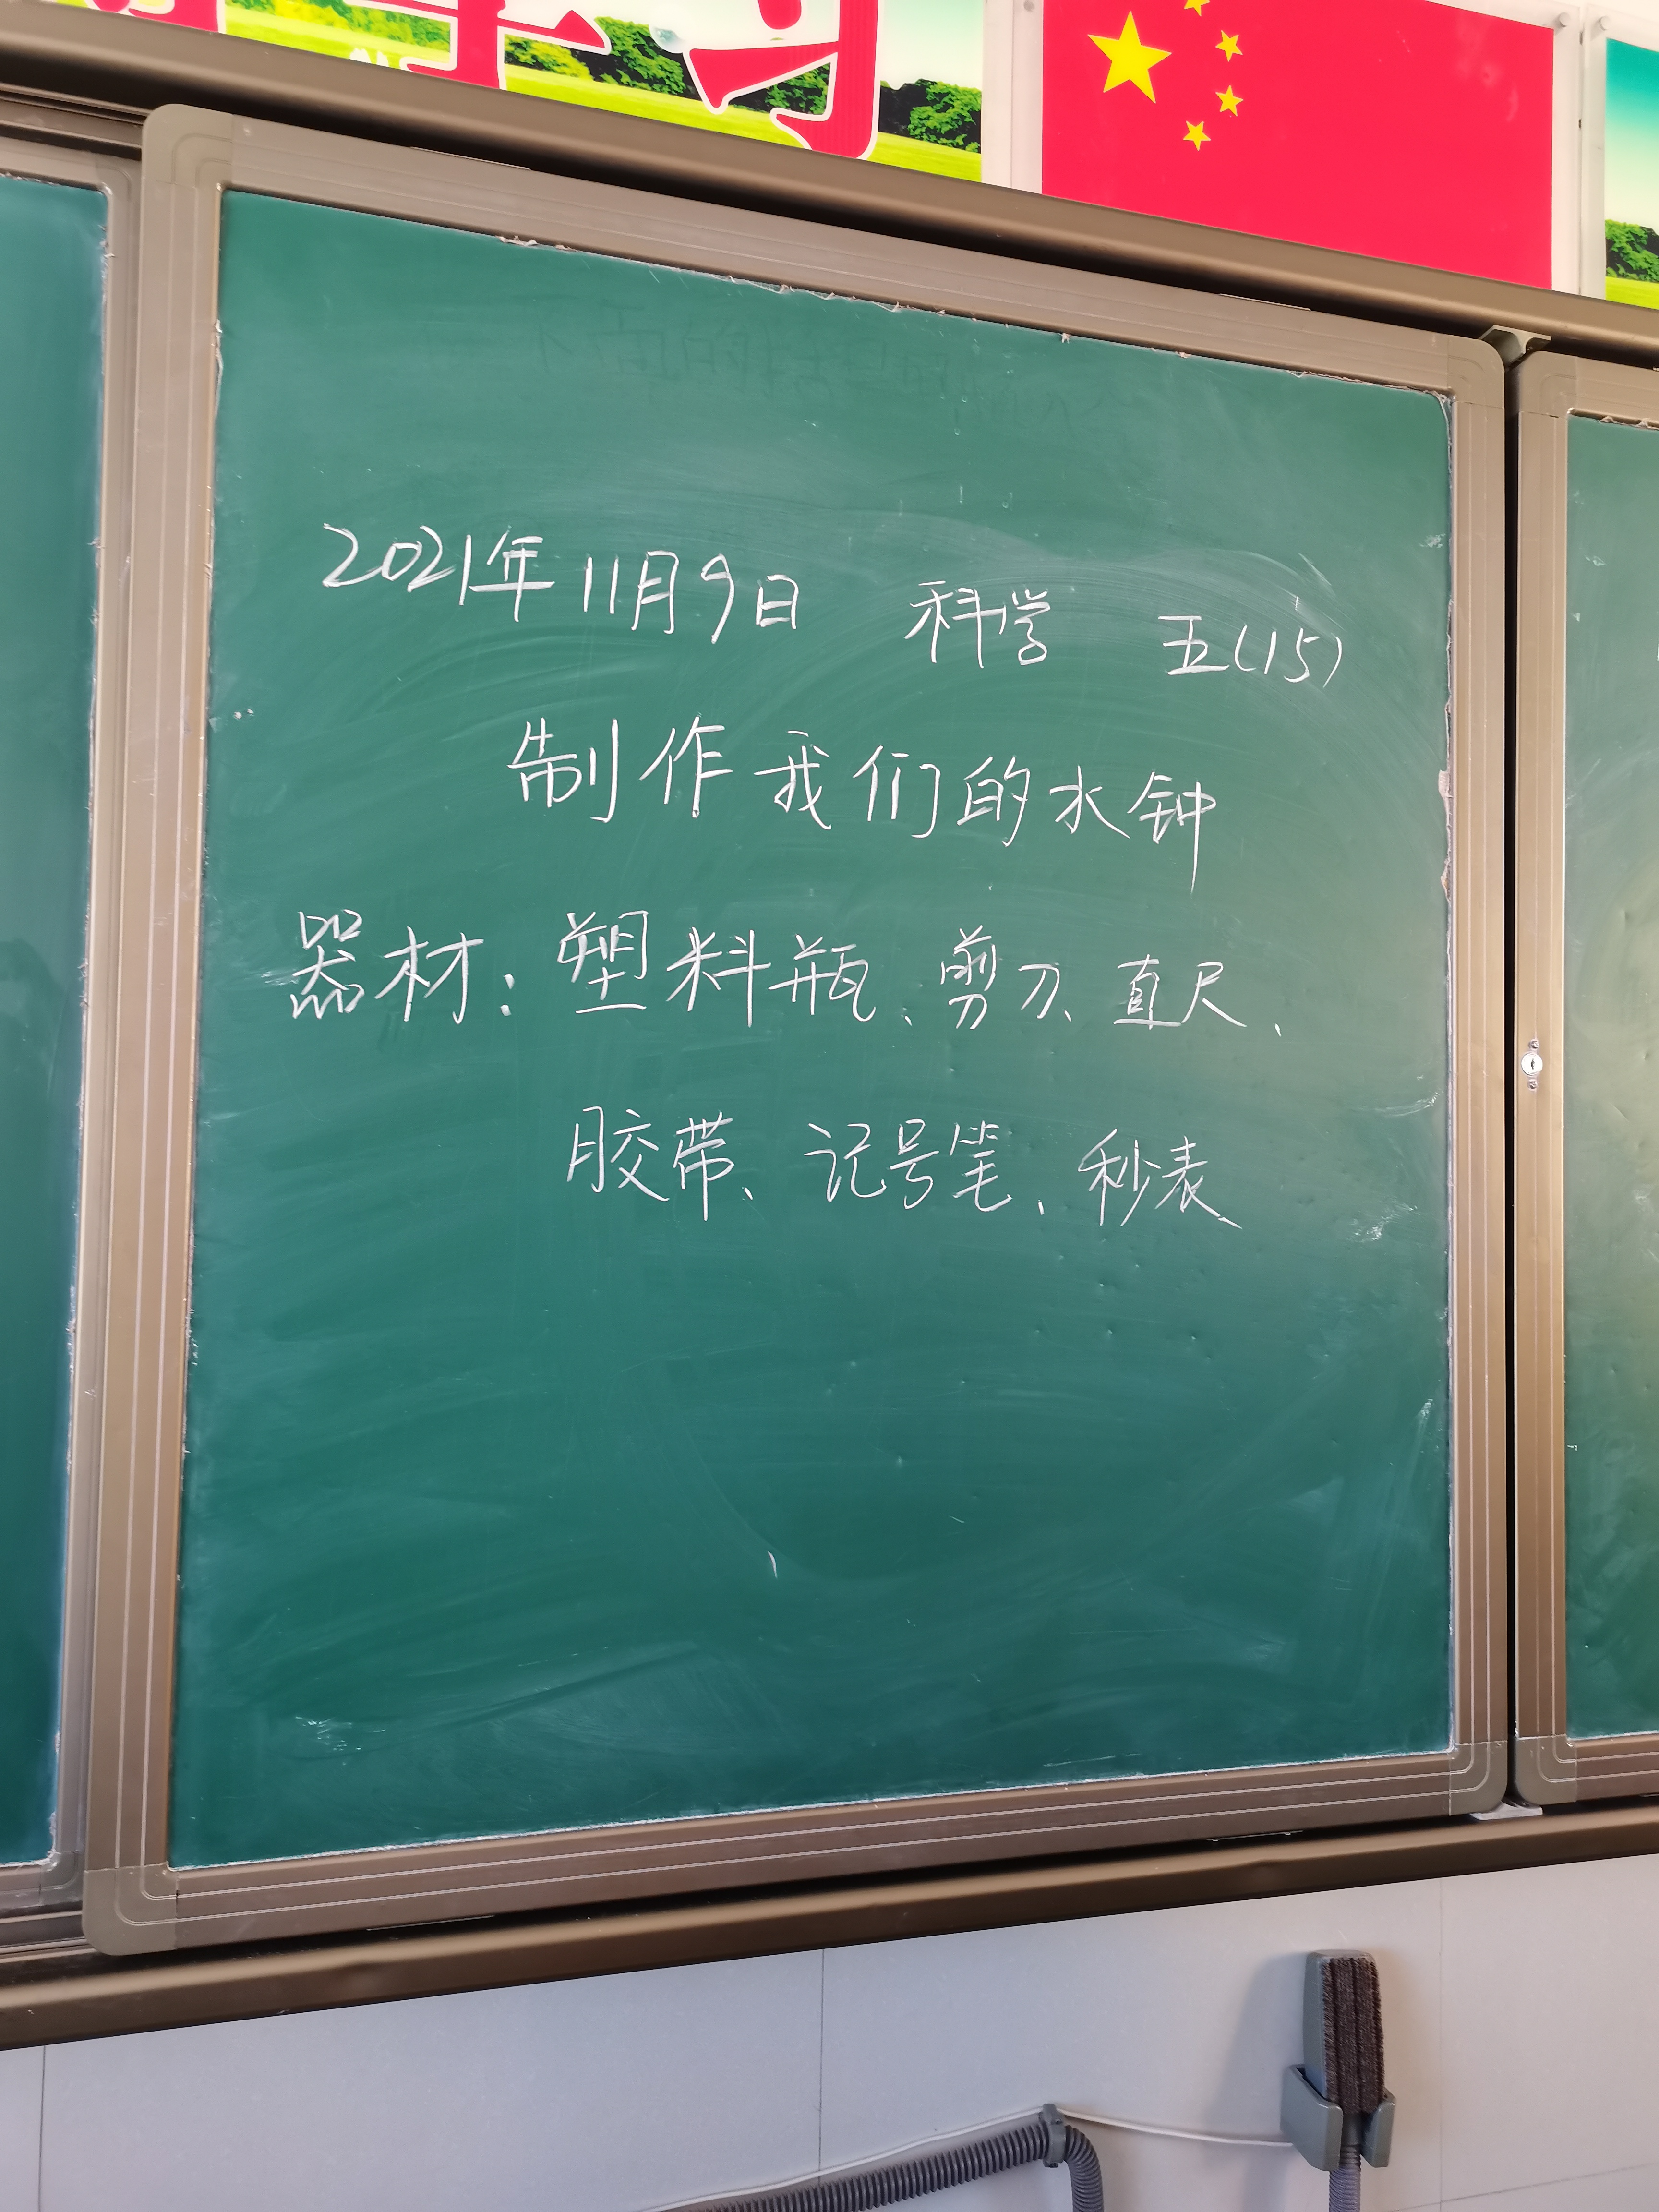 学习
2021年11月9日 科学 五(15)
制作我们的水钟
器材：塑料瓶、剪刀、直尺、
胶带、记号笔、秒表